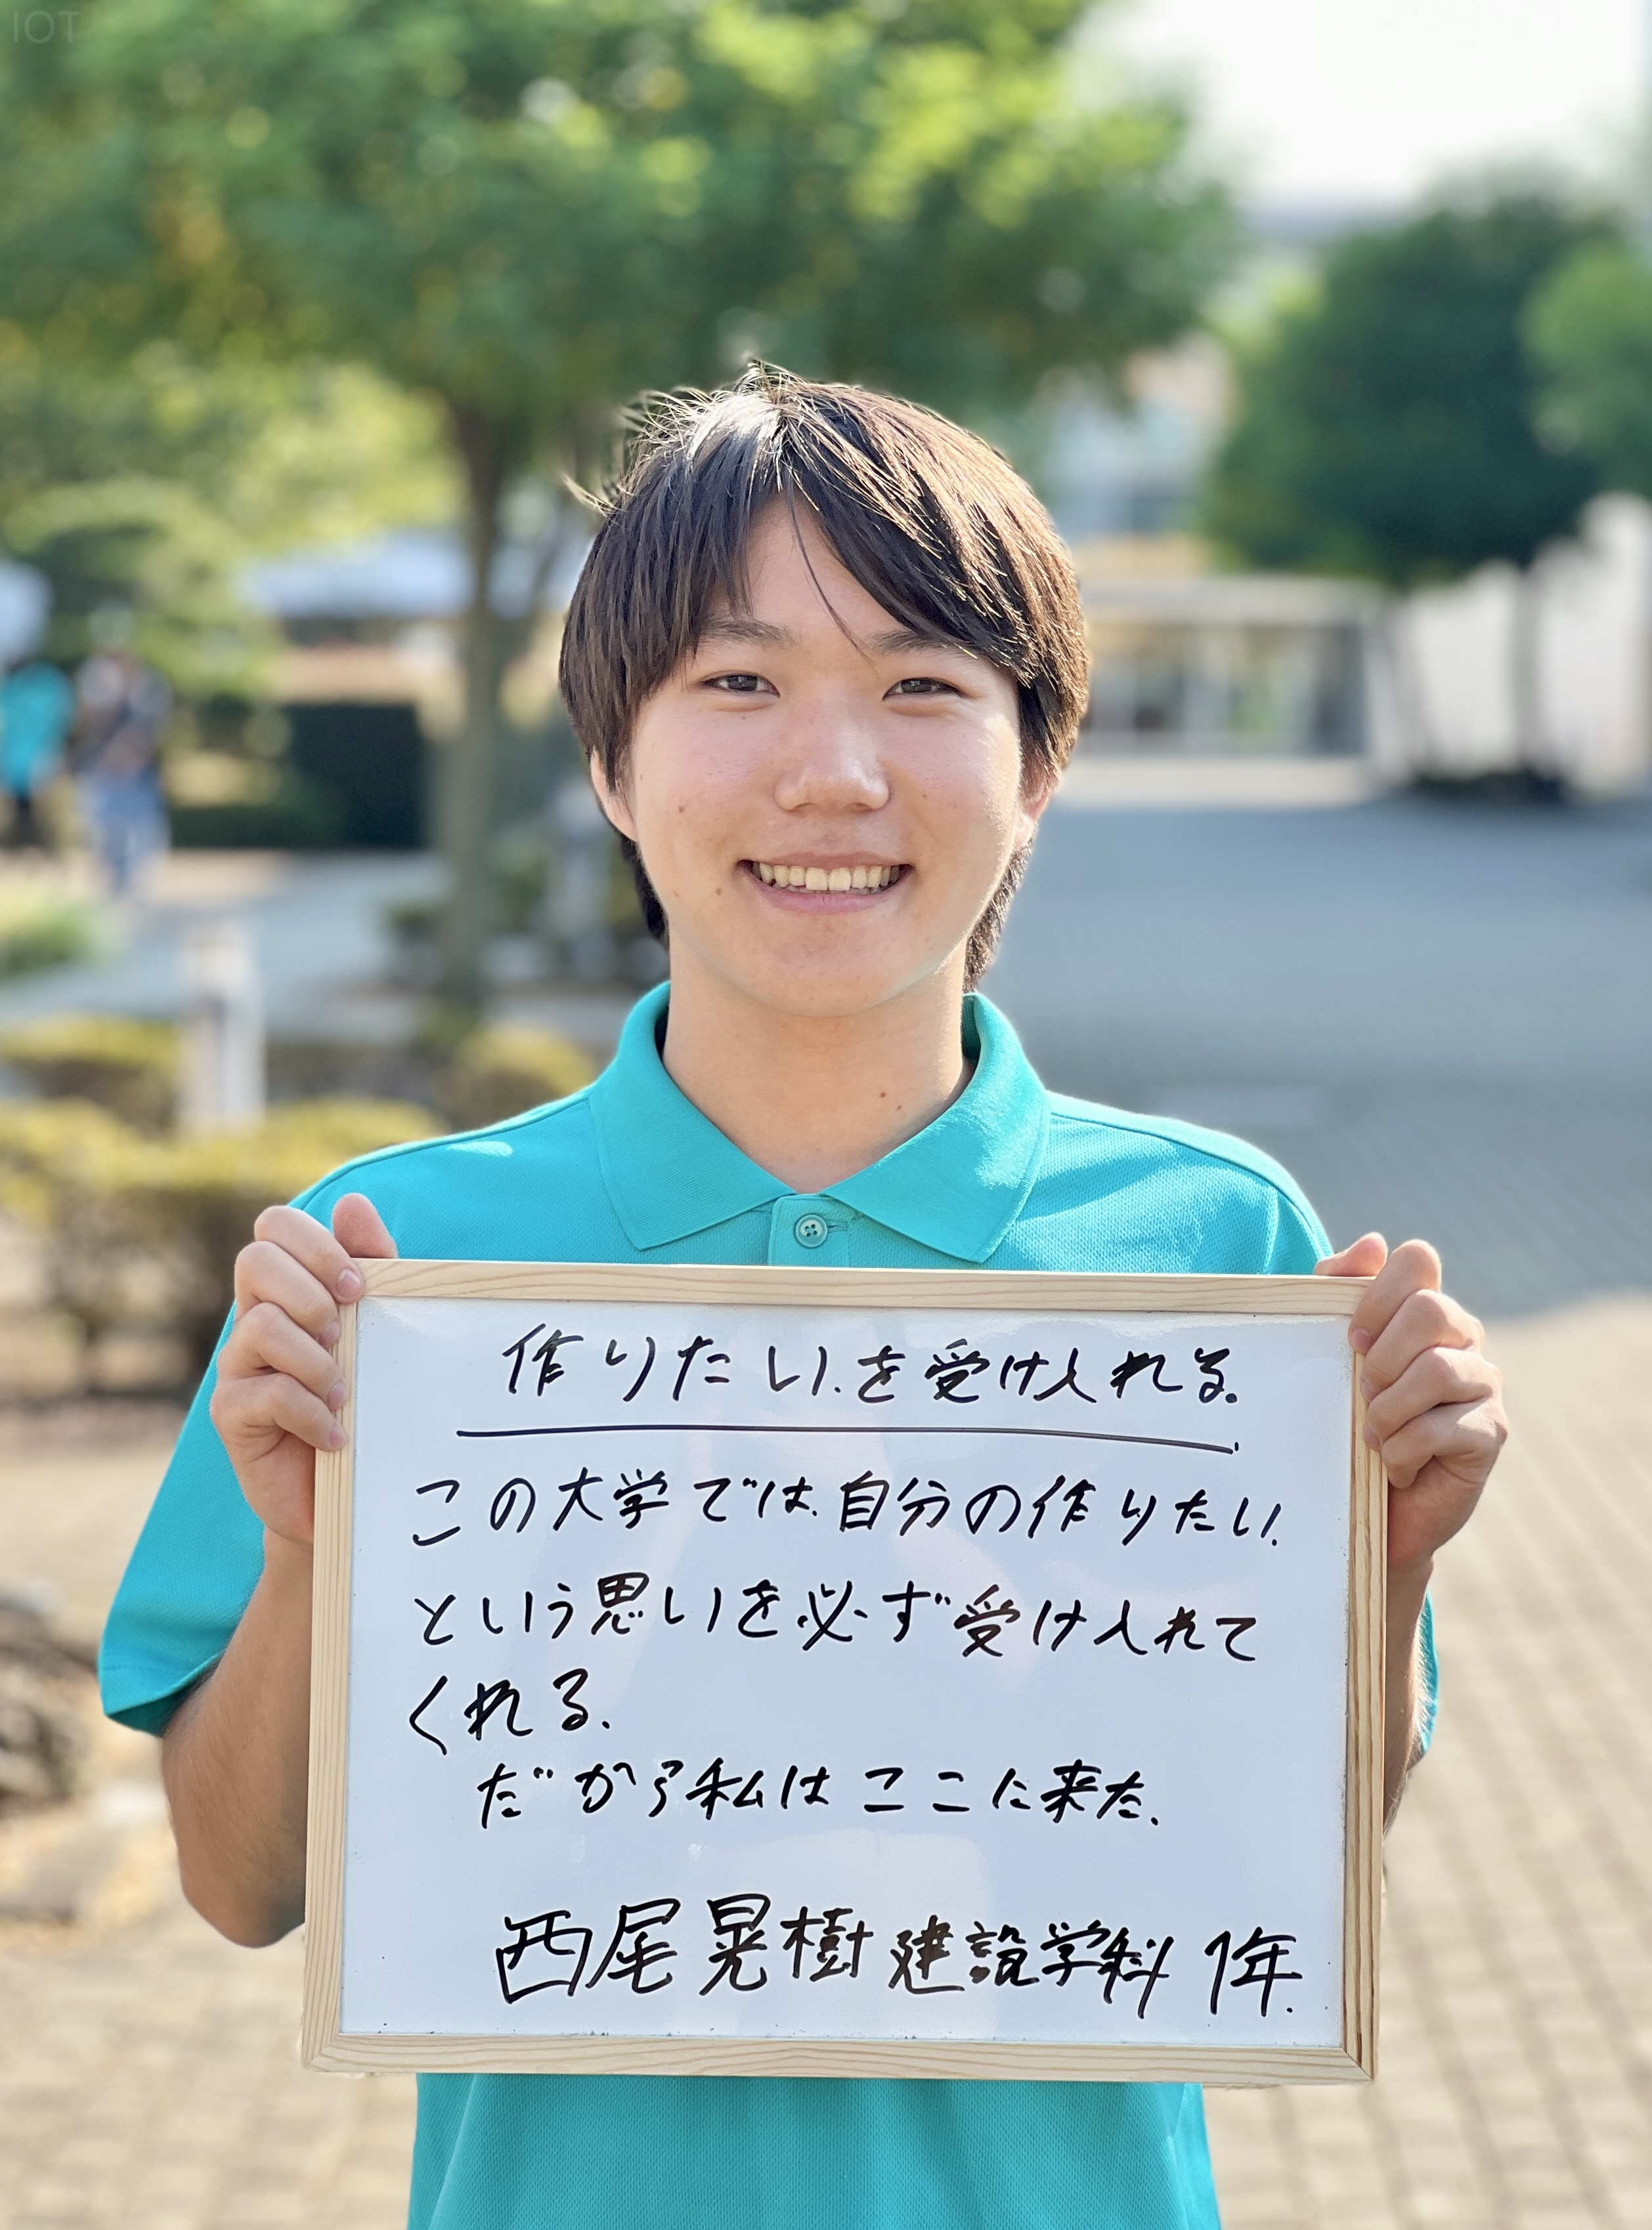 IOT
作りたい.を受け入れる.
この大学では.自分の作りたい.
という思いを必ず受け入れて
くれる.
だから私はここに来た.
西尾晃樹 建設学科 1年.